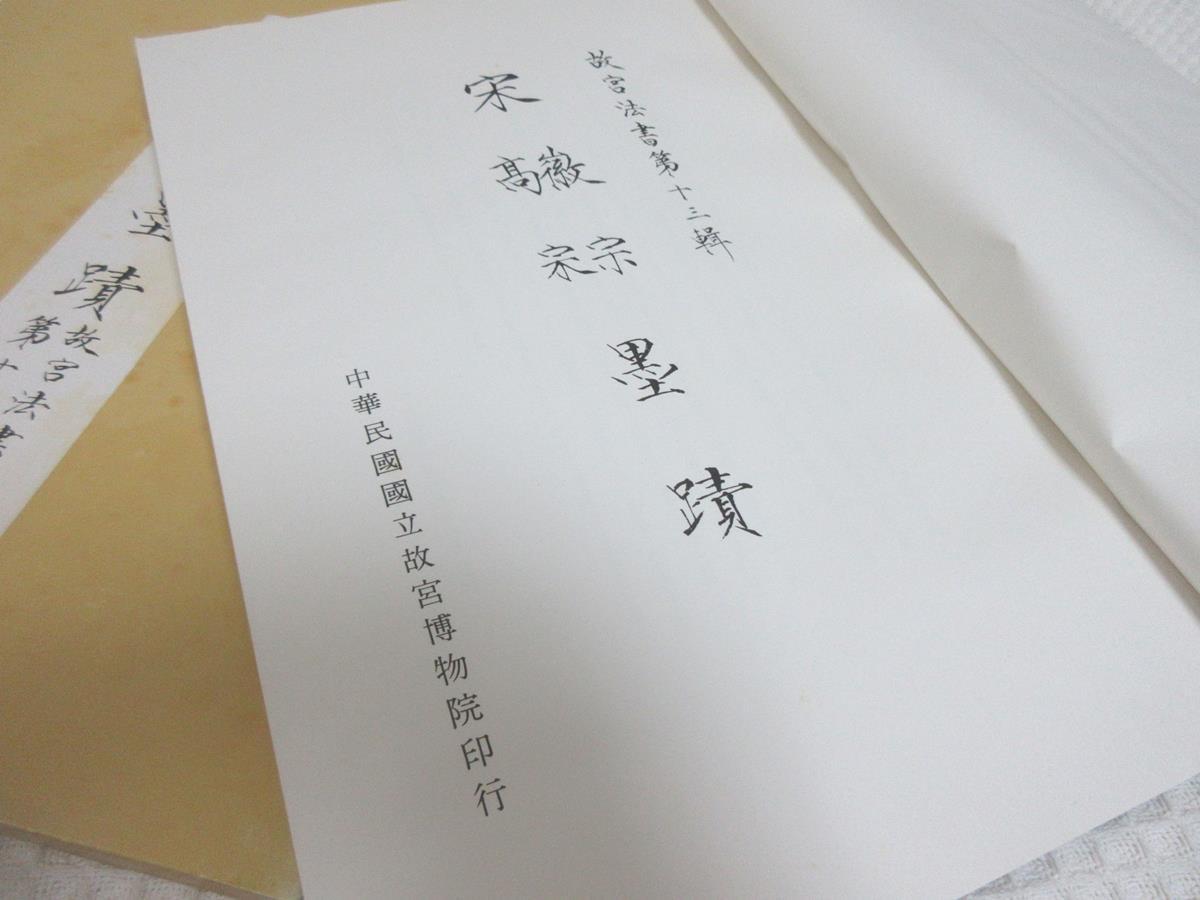 故宮法書第十三輯
宋徽宗高宋墨蹟
中華民國國立故宮博物院印行
墨蹟
故宮法書
第十